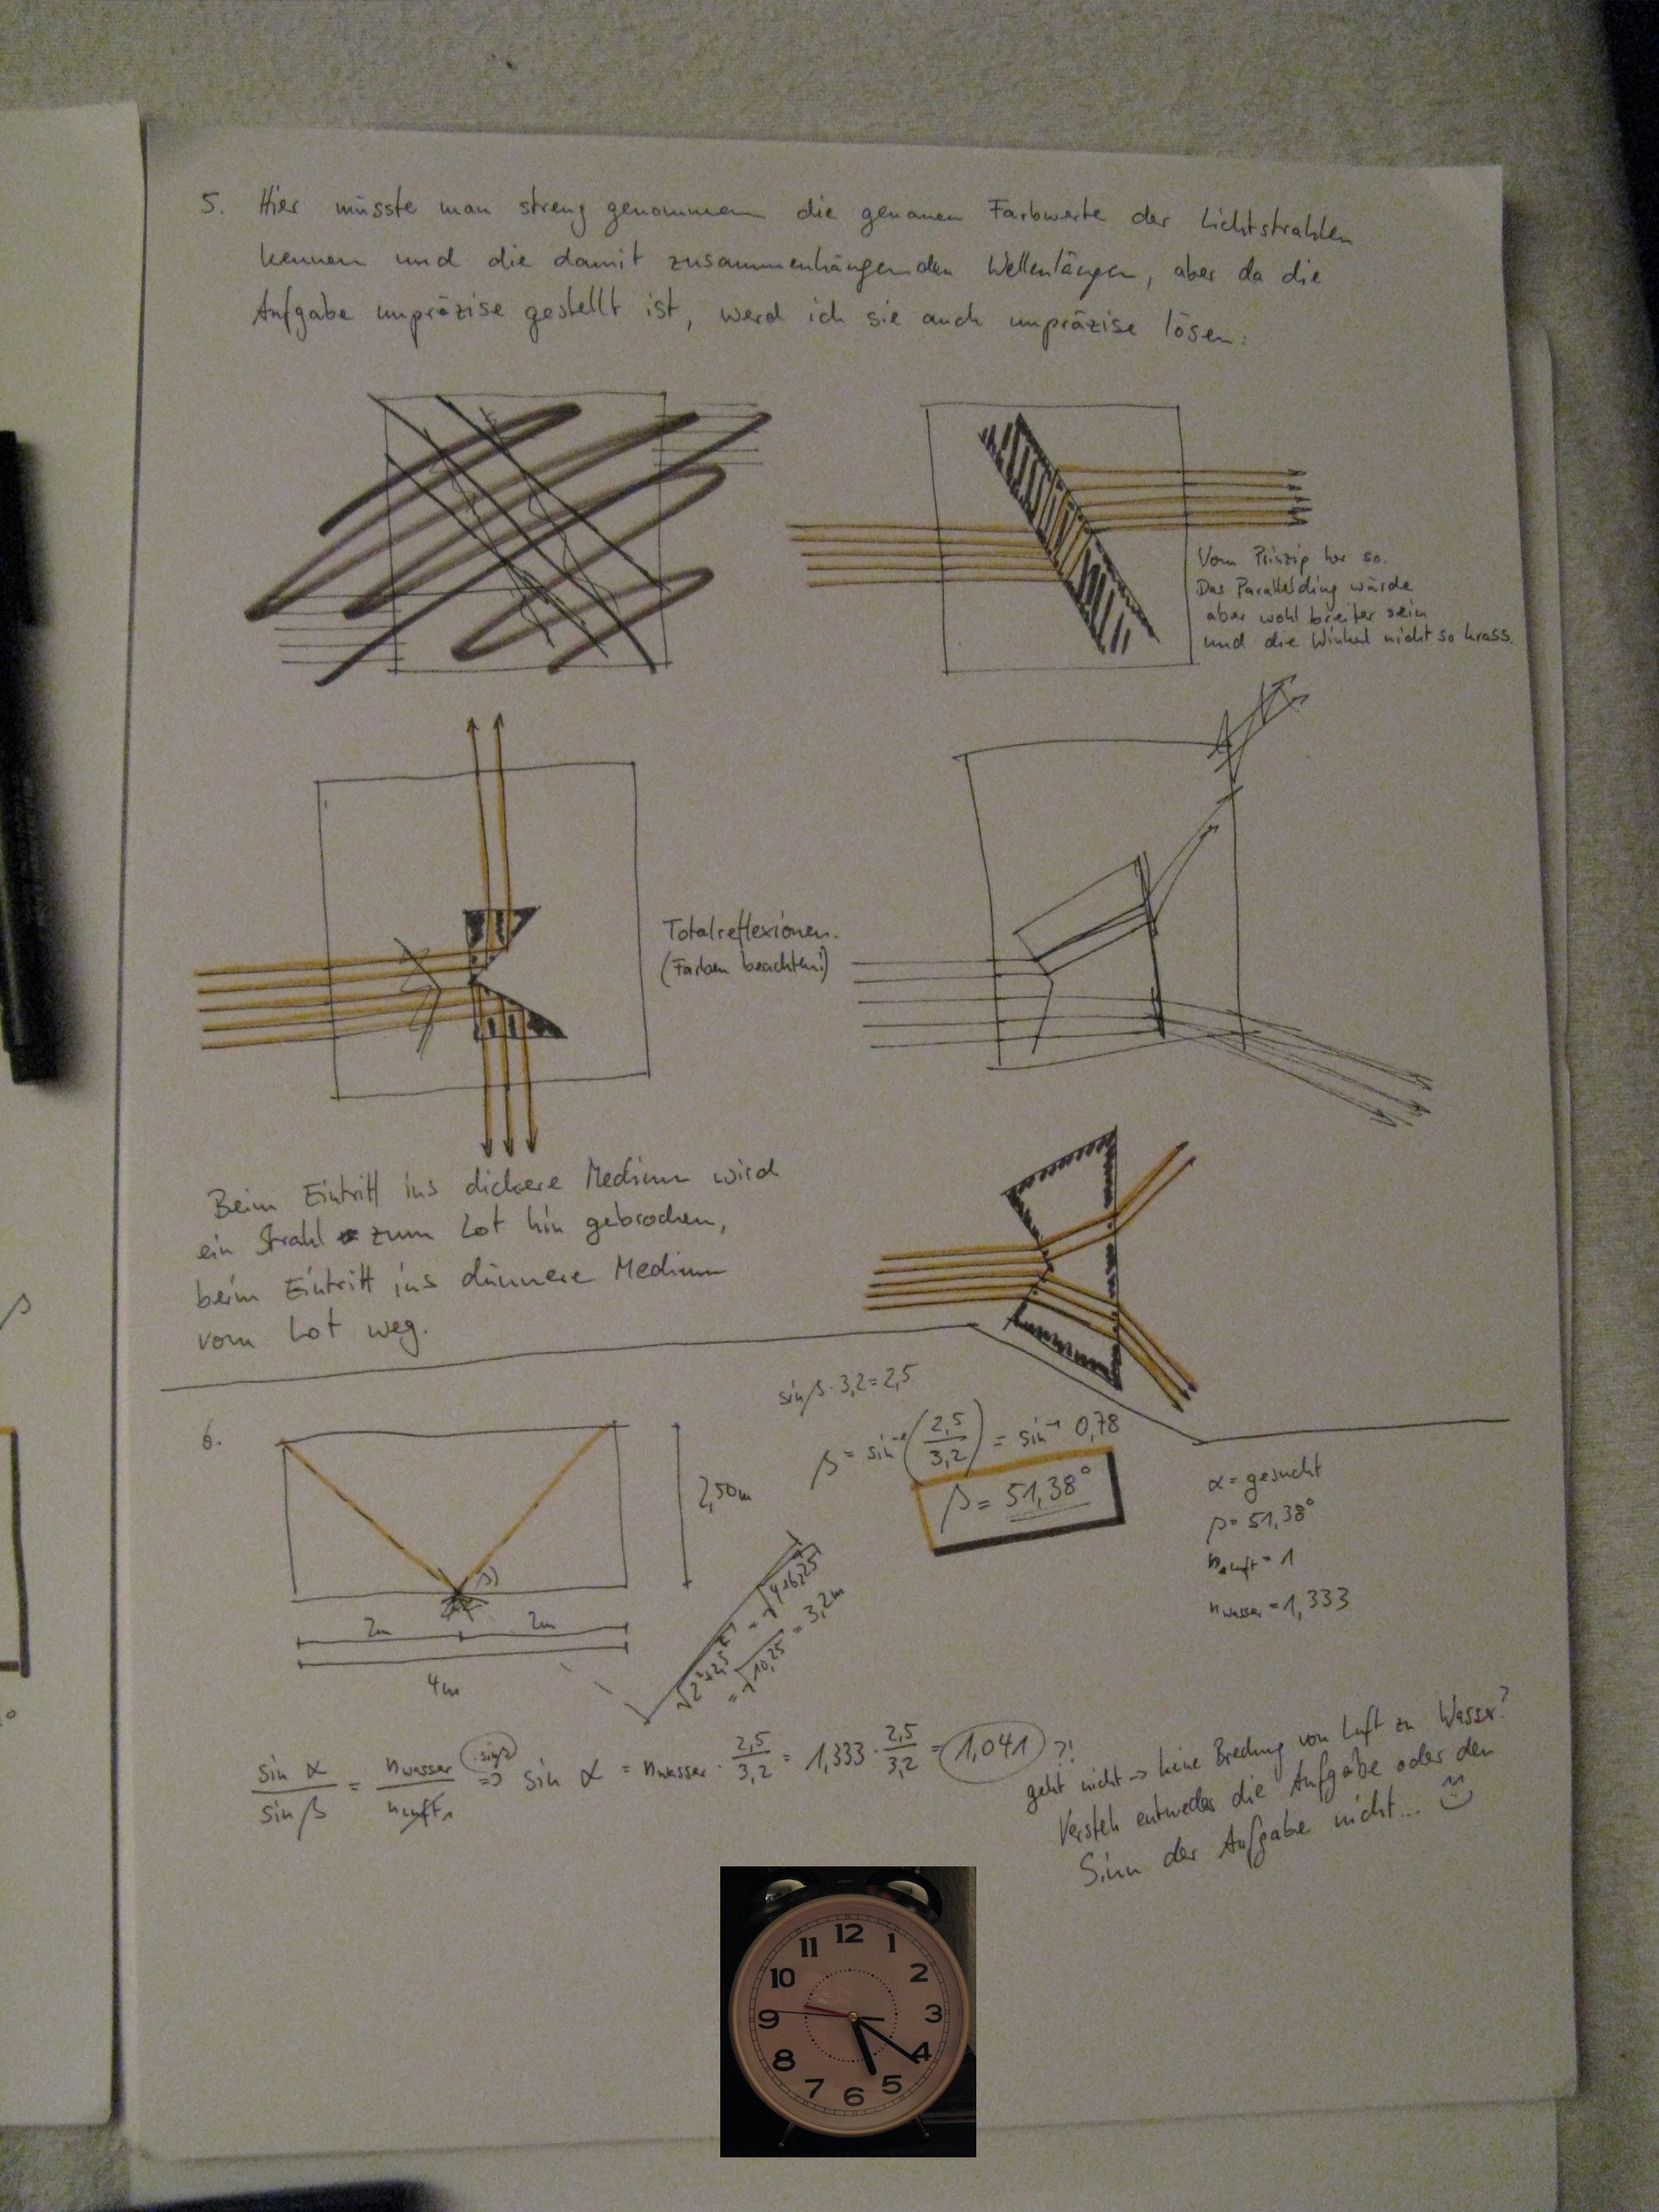 5. Hier müsste man streng genommen die genauen Farbwerte der Lichtstrahlen
kennen und die damit zusammenhängenden Wellenlängen, aber da die
Aufgabe unpräzise gestellt ist, werd ich sie auch unpräzise lösen:
Vom Prinzip her so.
Das Parallelding würde
aber wohl breiter sein
und die Winkel nicht so krass.
Totalreflexionen.
(Farben beachten!)
Beim Eintritt ins dickere Medium wird
ein Strahl zum Lot hin gebrochen,
beim Eintritt ins dünnere Medium
vom Lot weg.
β
6.
2,50m
β
2m 2m
4m
√2²+2,5² = √4+6,25
= √10,25 = 3,2m
sin β · 3,2 = 2,5
β = sin⁻¹(2,5/3,2) = sin⁻¹ 0,78
β = 51,38°
α = gesucht
β = 51,38°
n Luft = 1
n Wasser = 1,333
sin α / sin β = n Wasser / n Luft ⇒ · sin β sin α = n Wasser · 2,5/3,2 = 1,333 · 2,5/3,2 = 1,041 ?!
geht nicht → keine Brechung von Luft zu Wasser?
Versteh entweder die Aufgabe oder den
Sinn der Aufgabe nicht...
12
11 1
10 2
9 3
8 4
7 5
6